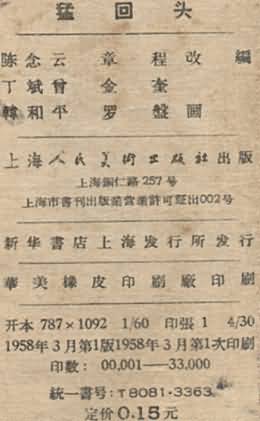 猛回头
陈念云 章程改編
丁斌曾 金奎
韓和平 罗盤画
上海人民美術出版社出版
上海銅仁路257号
上海市書刊出版業营業許可証出002号
新华書店上海发行所发行
華美橡皮印刷廠印刷
开本 787×1092 1/60 印張 1 4/30
1958年3月第1版1958年3月第1次印刷
印数: 00,001—33,000
統一書号:T8081·3363
定价0.15元